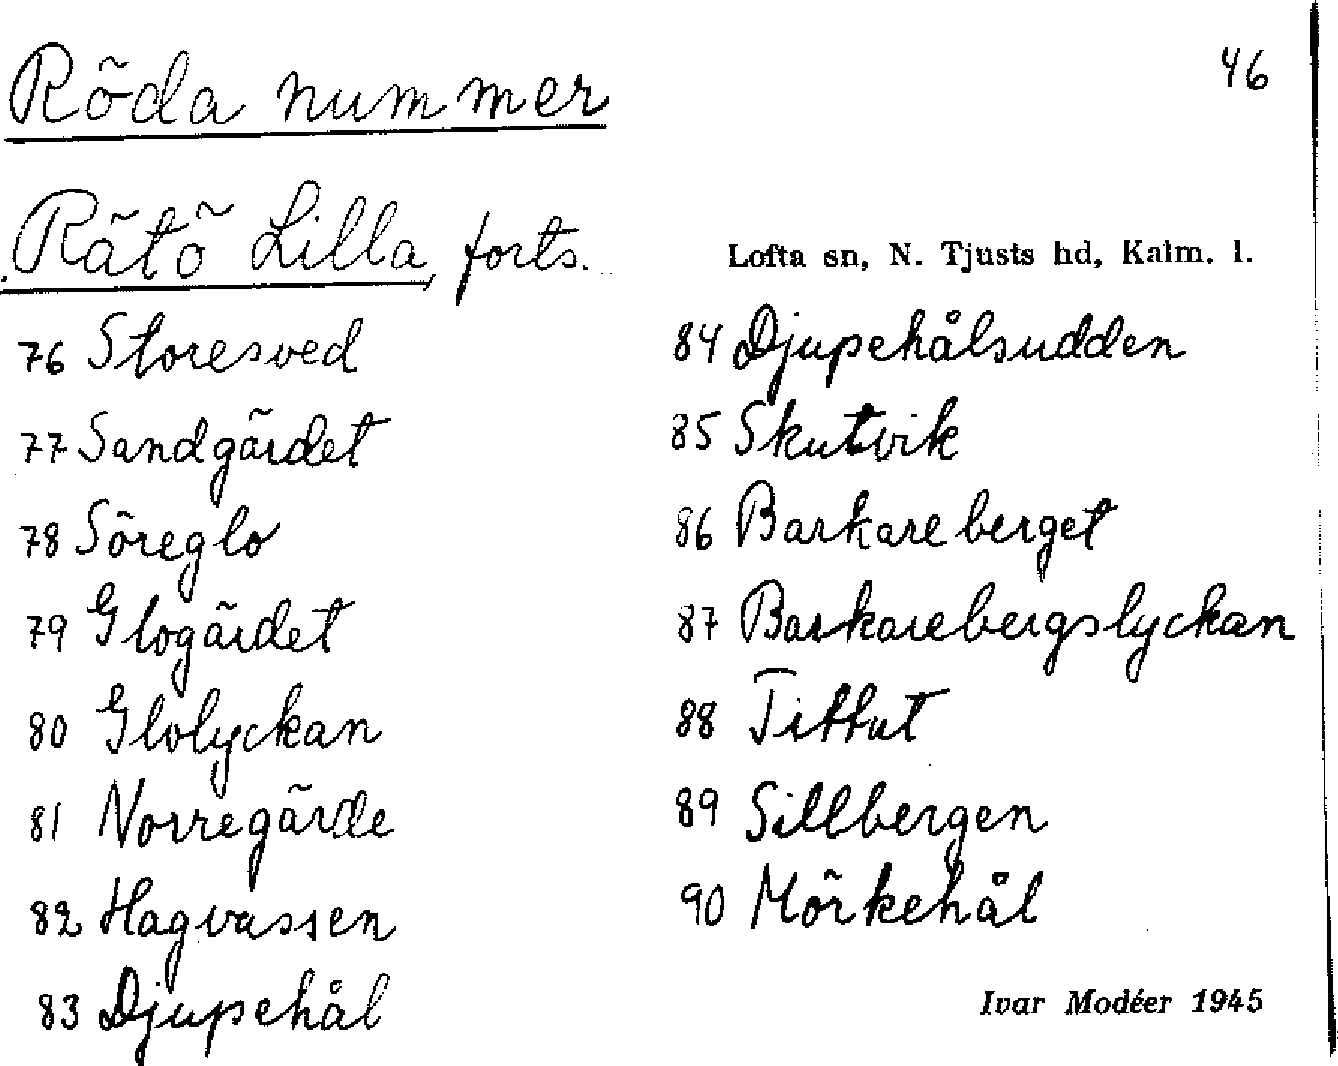 46
Röda nummer
Rätö Lilla, forts.
Lofta sn, N. Tjusts hd, Kalm. l.
76 Storesved
77 Sandgärdet
78 Söreglo
79 Glogärdet
80 Glolyckan
81 Norregärde
82 Hagvassen
83 Djupehål
84 Djupehålsudden
85 Skutvik
86 Barkareberget
87 Barkarebergslyckan
88 Tittut
89 Sillbergen
90 Mörkehål
Ivar Modéer 1945